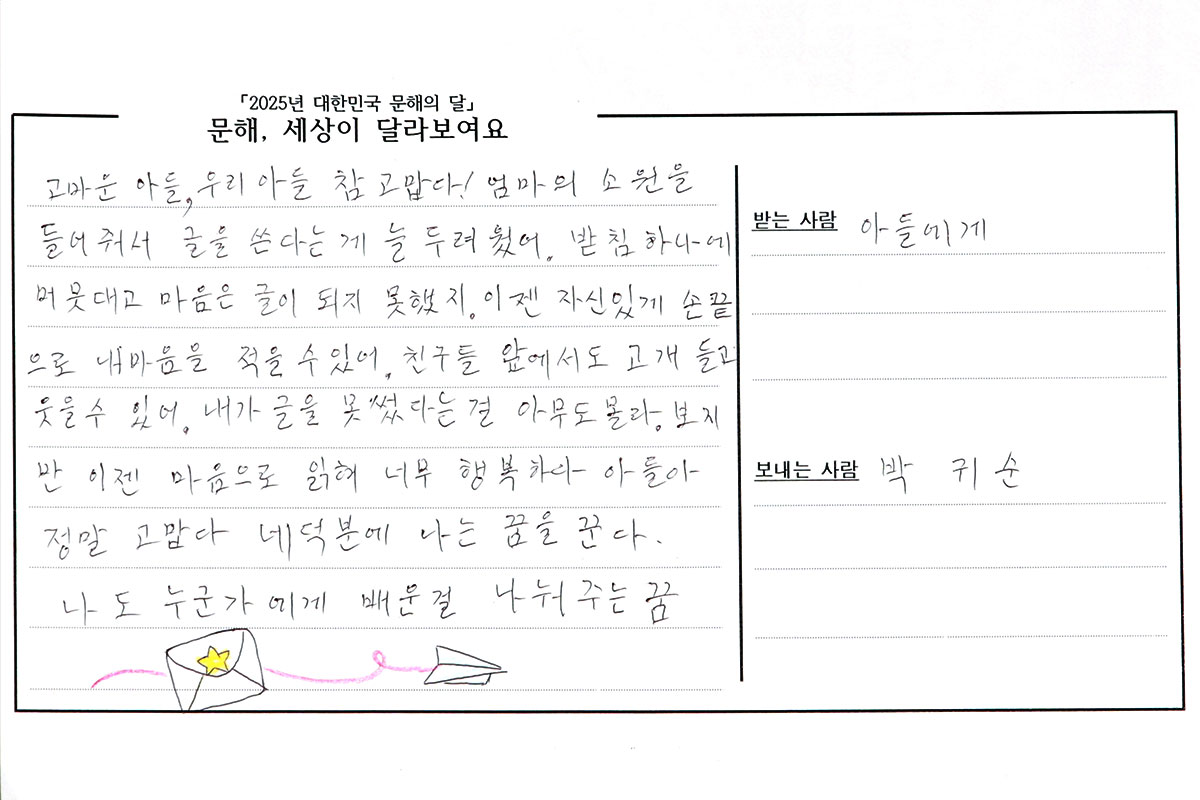 「2025년 대한민국 문해의 달」
문해, 세상이 달라보여요
고마운 아들, 우리 아들 참 고맙다! 엄마의 소원을
들어줘서 글을 쓴다는게 늘 두려웠어. 받침하나에
머뭇대고 마음은 글이 되지 못했지. 이젠 자신있게 손끝
으로 내마음을 적을 수 있어. 친구들 앞에서도 고개 들고
웃을수 있어. 내가 글을 못썼다는걸 아무도몰라. 보지
만 이젠 마음으로 읽혀 너무 행복하다 아들아
정말 고맙다 네덕분에 나는 꿈을 꾼다.
나도 누군가에게 배운걸 나눠주는 꿈
받는 사람 아들에게
보내는 사람 박 귀 순